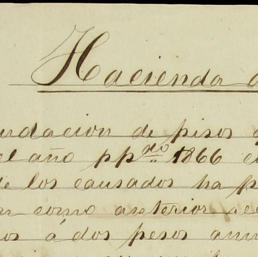 Hacienda d
udacion de pisos q
el año pp.do 1866 e
de los causados ha p
n como anterior se
os á dos pesos anu